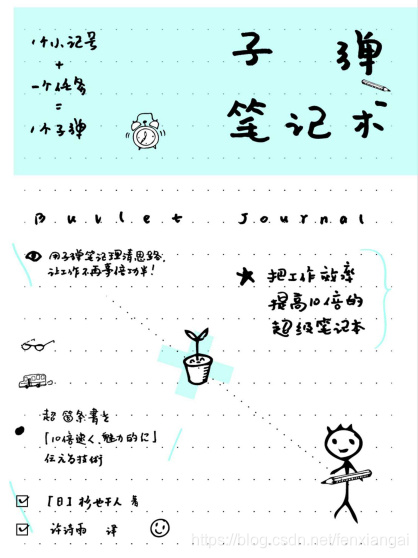 1个小记号
+
一个任务
=
1个子弹
子弹
笔记术
Bullet Journal
用子弹笔记理清思路,
让工作不再事倍功半!
把工作效率
提高10倍的
超级笔记本
超箇条書き
「10倍速く、魅力的に」
伝える技術
[日] 杉野干人 著
许诗雨 译
https://blog.csdn.net/fenxiangai